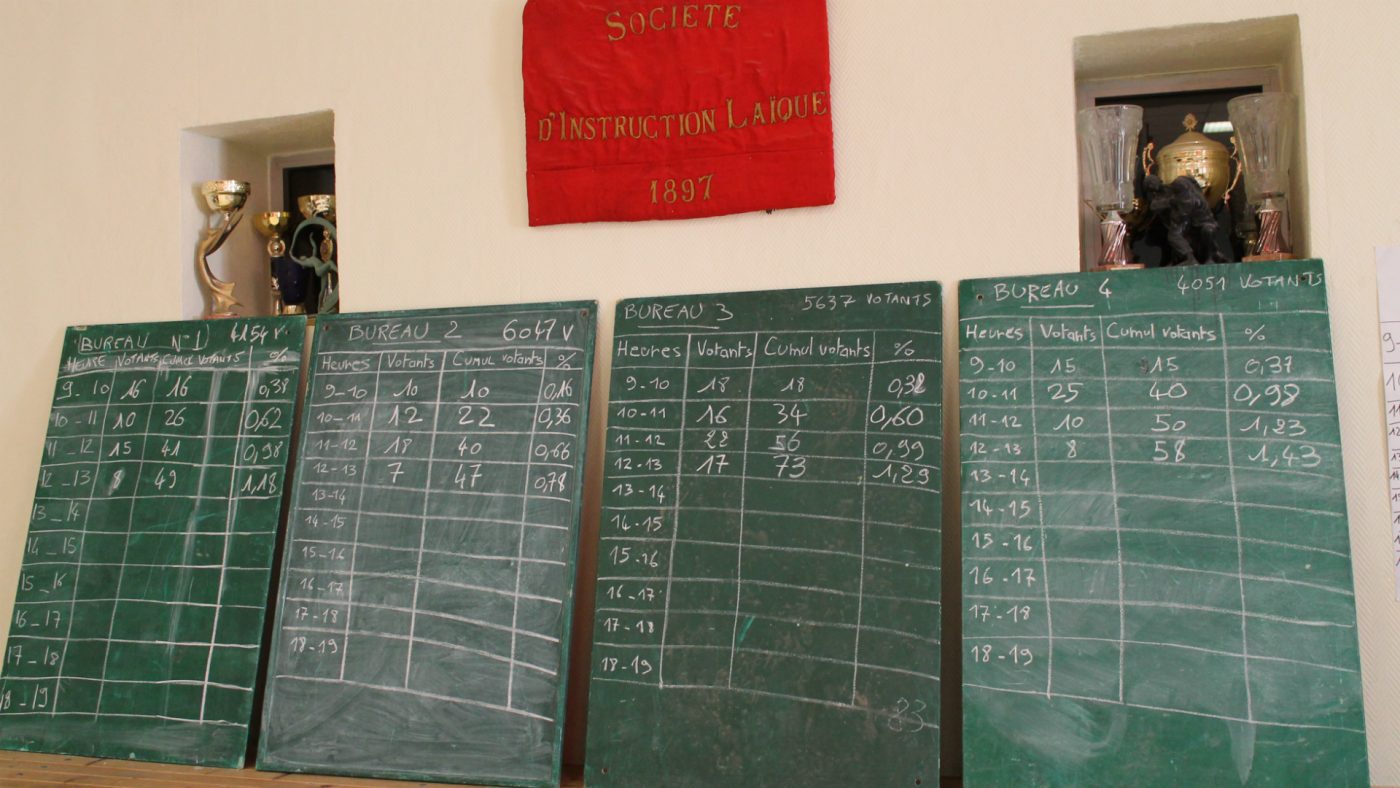 SOCIÉTÉ
D'INSTRUCTION LAÏQUE
1897
BUREAU N°1 4154 V.
HEURE VOTANTS CUMUL VOTANTS %
9-10 16 16 0,38
10-11 10 26 0,62
11-12 15 41 0,98
12-13 8 49 1,18
13-14
14-15
15-16
16-17
17-18
18-19
BUREAU 2 6047 V
Heures Votants Cumul votants %
9-10 10 10 0,16
10-11 12 22 0,36
11-12 18 40 0,66
12-13 7 47 0,78
13-14
14-15
15-16
16-17
17-18
18-19
BUREAU 3 5637 VOTANTS
Heures Votants Cumul votants %
9-10 18 18 0,32
10-11 16 34 0,60
11-12 22 56 0,99
12-13 17 73 1,29
13-14
14-15
15-16
16-17
17-18
18-19
BUREAU 4 4051 VOTANTS
Heures Votants Cumul votants %
9-10 15 15 0,37
10-11 25 40 0,98
11-12 10 50 1,23
12-13 8 58 1,43
13-14
14-15
15-16
16-17
17-18
18-19